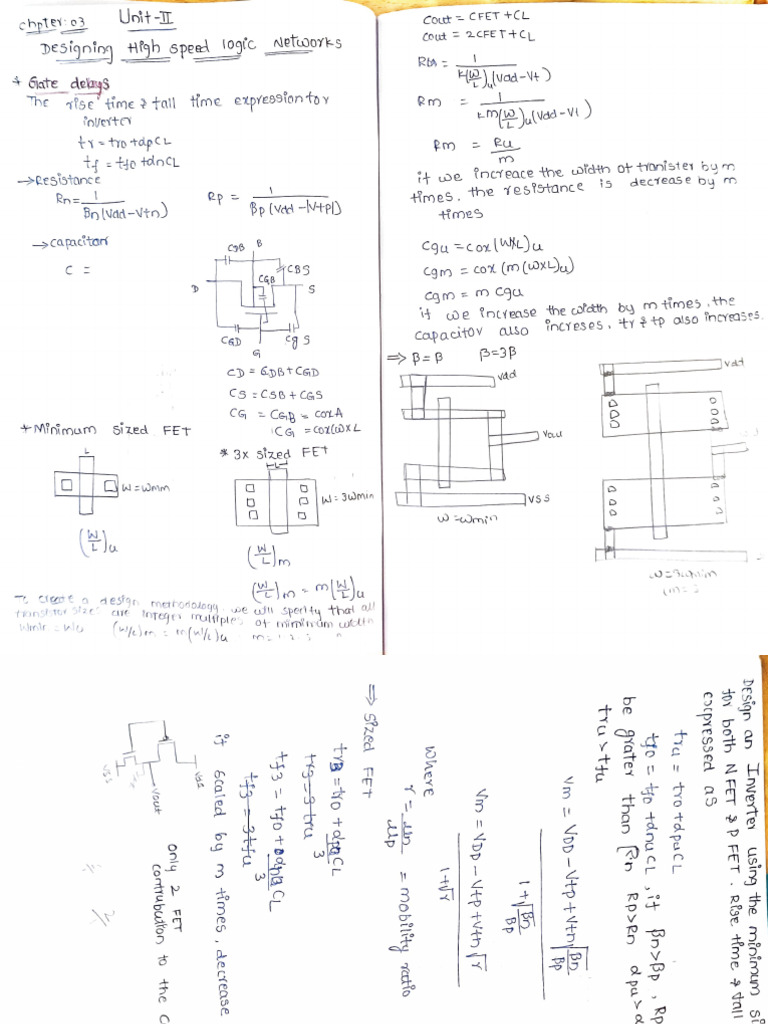 chpter:03 Unit-II
Designing High speed logic Networks
* Gate delays
The rise time & fall time expression for
inverter
tr = tro + dpCL
tf = tfo + dnCL
→ Resistance
Rn = 1 / Bn(Vdd-Vtn)
Rp = 1 / Bp(Vdd-|Vtp|)
→ capacitor
C =
CDB B
CBS
CGB
D S
CGD CgS
G
CD = CDB + CGD
CS = CSB + CGS
CG = CGB = coxA
CG = cox(w×L
* Minimum sized FET
L
W = wmin
(W/L)u
* 3x sized FET
L
W = 3wmin
(W/L)m
(W/L)m = m(W/L)u
To create a design methodology we will specify that all
transistor sizes are integer multiples of minimum width
Wmin = Wu (W/L)m = m(W/L)u m=1,2,3
Cout = CFET + CL
Cout = 2CFET + CL
1 / K(W/L)u(Vdd-Vt)
Rm = 1 / km(W/L)u(Vdd-Vt)
Rm = Ru / m
if we increace the width of tranister by m
times, the resistance is decrease by m
times
Cgu = cox(W×L)u
Cgm = cox(m(W×L)u)
Cgm = m cgu
if we increase the width by m times, the
capacitor also increses, tr & tp also increases.
⇒ β = β β = 3β
Vdd
Vou
VSS
W = wmin
Vdd
W = 3wmin
(m =
Design an Inverter using the minimum si
for both NFET & PFET. Rise time & fall
expressed as
tru = tro + dpuCL
tfo = tfo + dnuCL, if βn>βp, Rp
be grater than βn Rp>Rn dpu>
tru > tfu
Vm = VDD - Vtp + Vtn√(Bn/Bp) / 1+√(Bn/Bp)
Vm = VDD - Vtp + Vtn√r / 1+√r
where
r = µn/µp = mobility ratio
⇒ sized FET
tr3 = tro + dpuCL / 3
tr3 = 3tru
tf3 = tfo + CL / 3
tf3 = 3tfu
if scaled by m times, decrease
Vss
Vout
only 2 FET
contrubution to the C